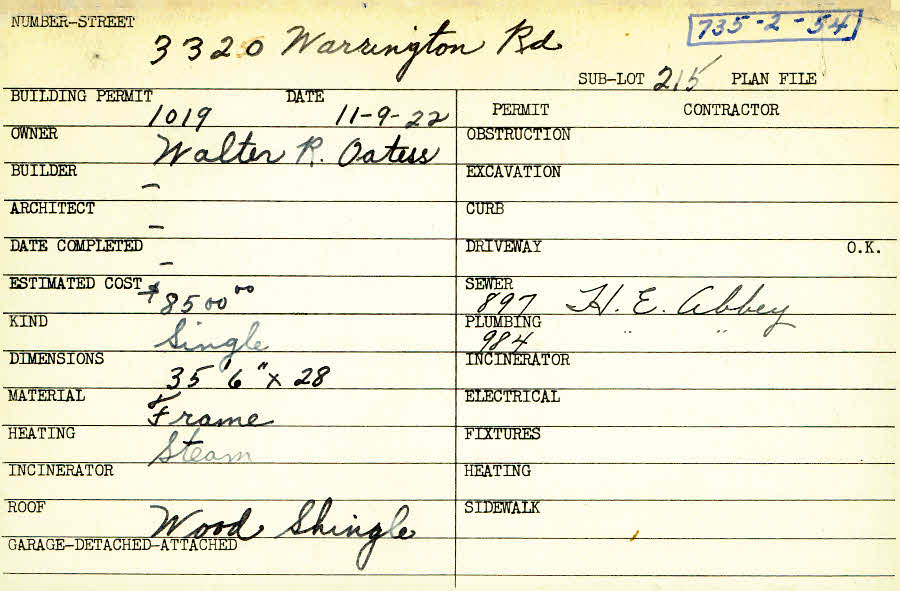 NUMBER-STREET
3320 Warrington Rd
735-2-54
SUB-LOT 215 PLAN FILE
BUILDING PERMIT 1019 DATE 11-9-22
OWNER Walter R. Oatess
BUILDER -
ARCHITECT -
DATE COMPLETED -
ESTIMATED COST $8500 00
KIND Single
DIMENSIONS 35' 6" x 28
MATERIAL Frame
HEATING Steam
INCINERATOR
ROOF Wood Shingle
GARAGE-DETACHED-ATTACHED
PERMIT CONTRACTOR
OBSTRUCTION
EXCAVATION
CURB
DRIVEWAY O.K.
SEWER 897 H. E. Abbey
PLUMBING 984 " "
INCINERATOR
ELECTRICAL
FIXTURES
HEATING
SIDEWALK